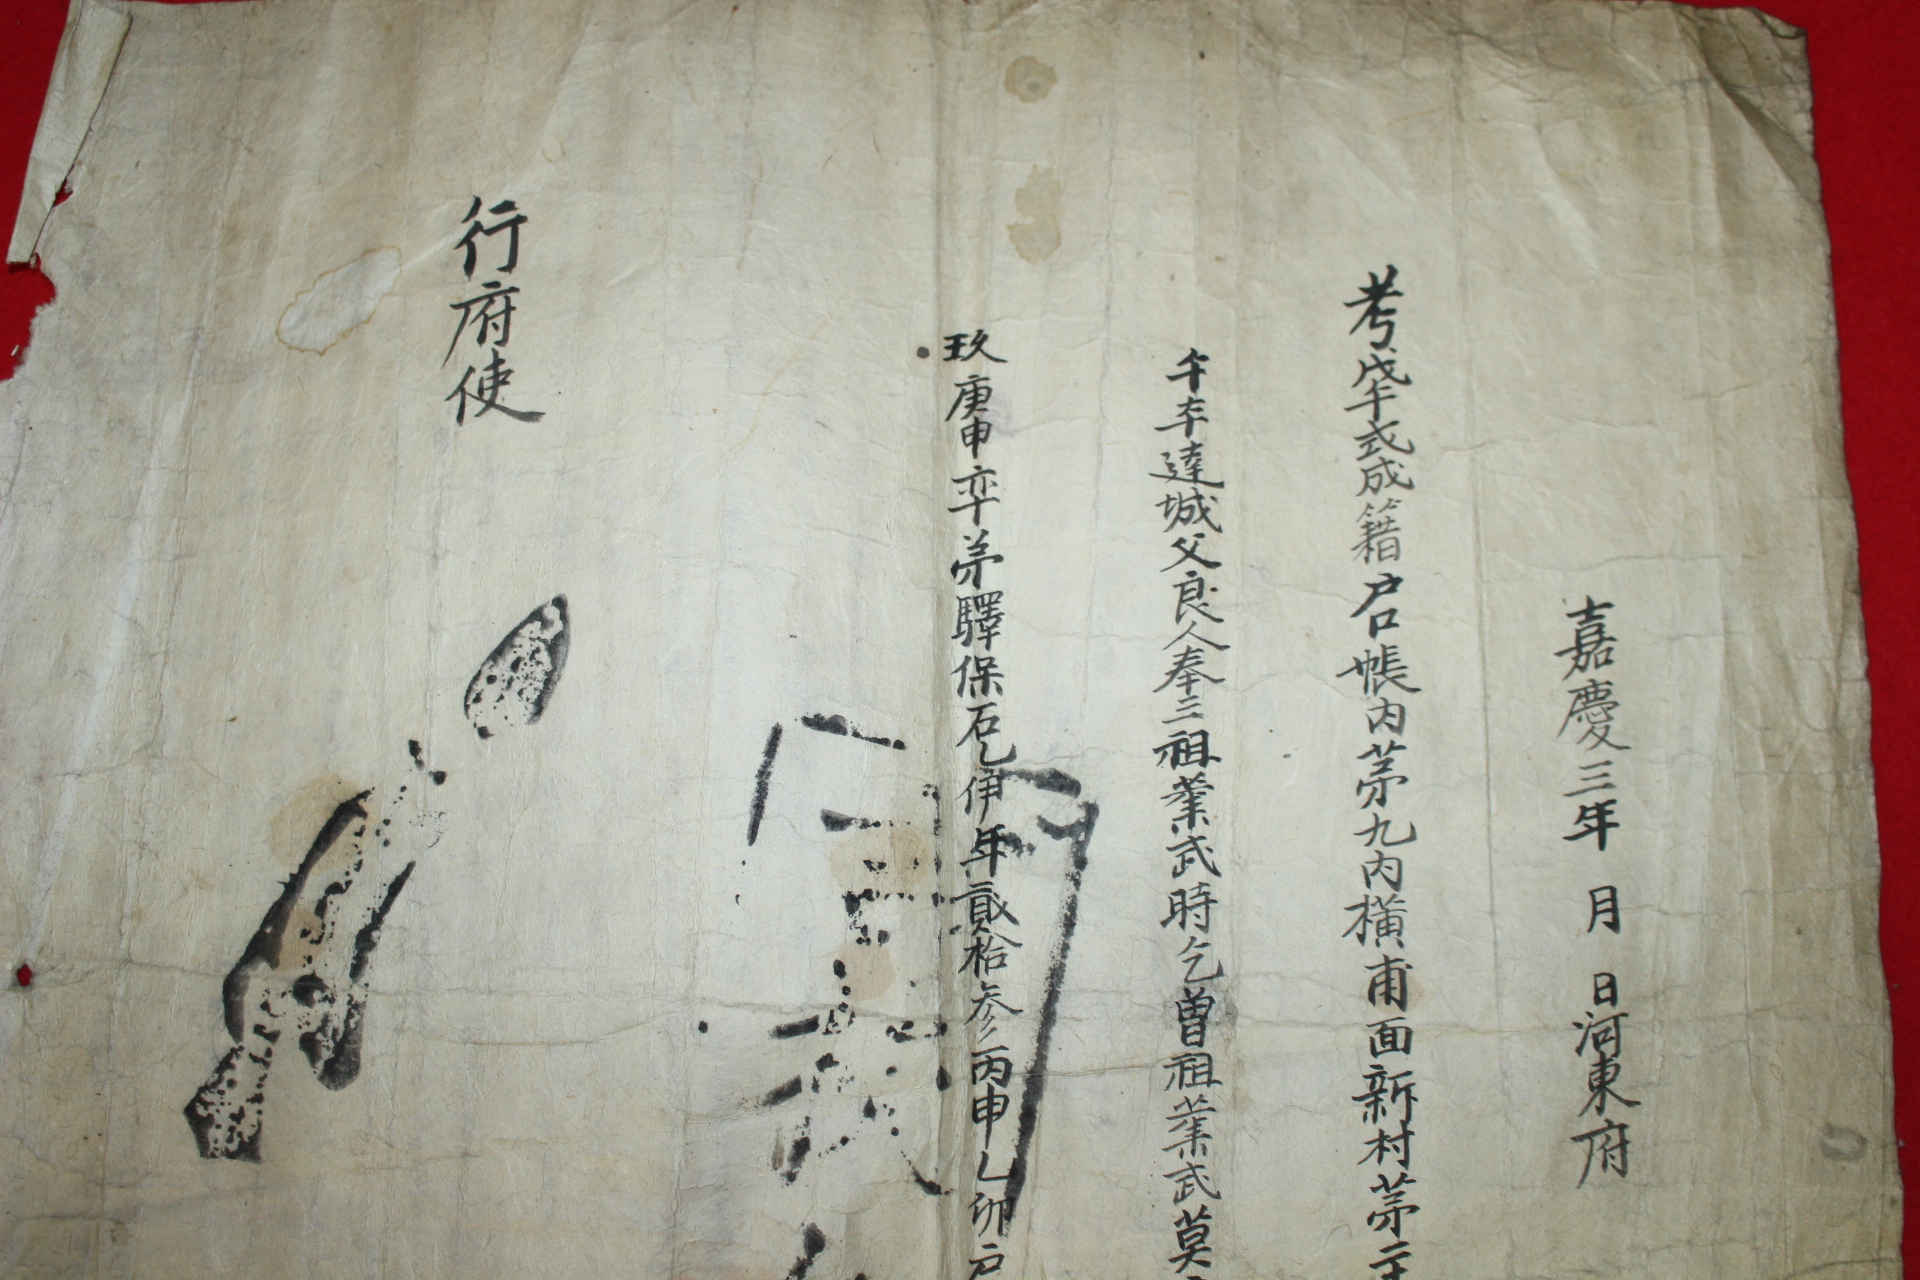 嘉慶三年 月 日河東府
考戊午式成籍戶口帳內茅九內橫甫面新村茅二
午本達城父良人奉三祖業武時乞曽祖業武莫
玖庚申卒弟驛保石乙伊年貳拾參丙申乙卯戶
行府使